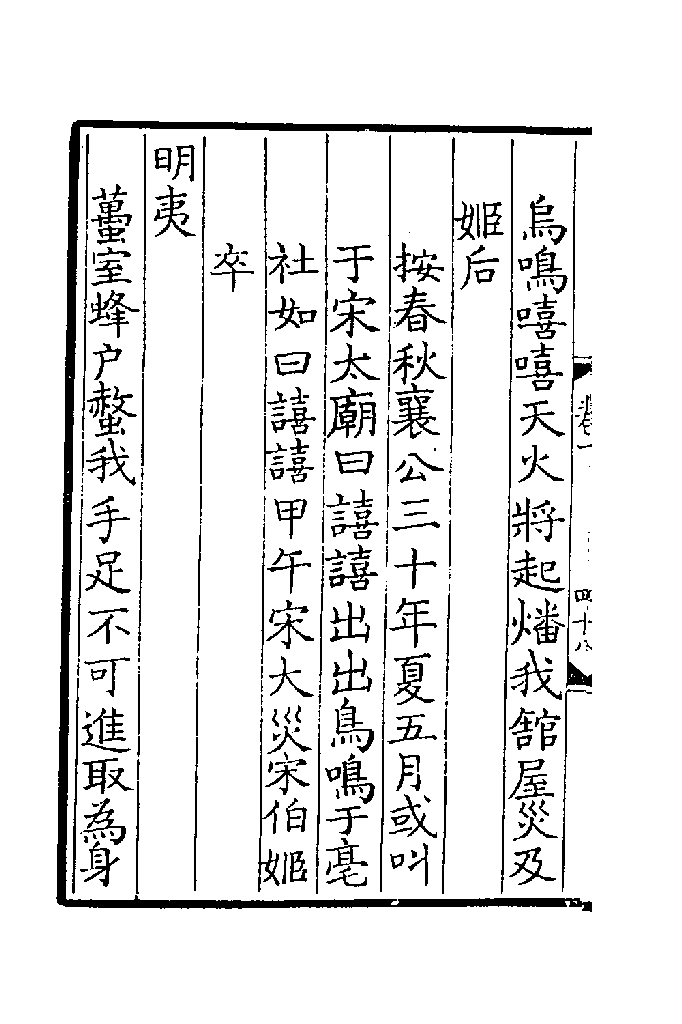 烏鳴嘻嘻天火將起燔我舘屋災及
姬后
按春秋襄公三十年夏五月或叫
于宋太廟曰譆譆出出鳥鳴于亳
社如曰譆譆甲午宋大災宋伯姬
卒
明夷
蠆室蜂户螫我手足不可進取為身
四十八